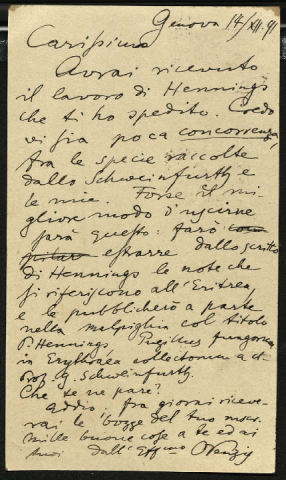 Genova 17/XII. 91
Carissimo
Avrai ricevuto
il lavoro di Hennings
che ti ho spedito. Credo
vi sia poca concorrenza,
fra le specie raccolte
dallo Schweinfurth e
le mie. Forse il mi-
gliore modo d'uscirne
sarà questo: farò
estrarre dallo scritto
di Hennings le note che
si riferiscono all'Eritrea
e le pubblicherò a parte
nella Malpighia col titolo
P. Hennings fungorum
in Erythraea collectorum a cl.
Prof. G. Schweinfurth.
Che te ne pare?
Addio, fra giorni riceve-
rai le bozze del tuo
mille buone cose a te ed ai
tuoi dall'affmo Penzig